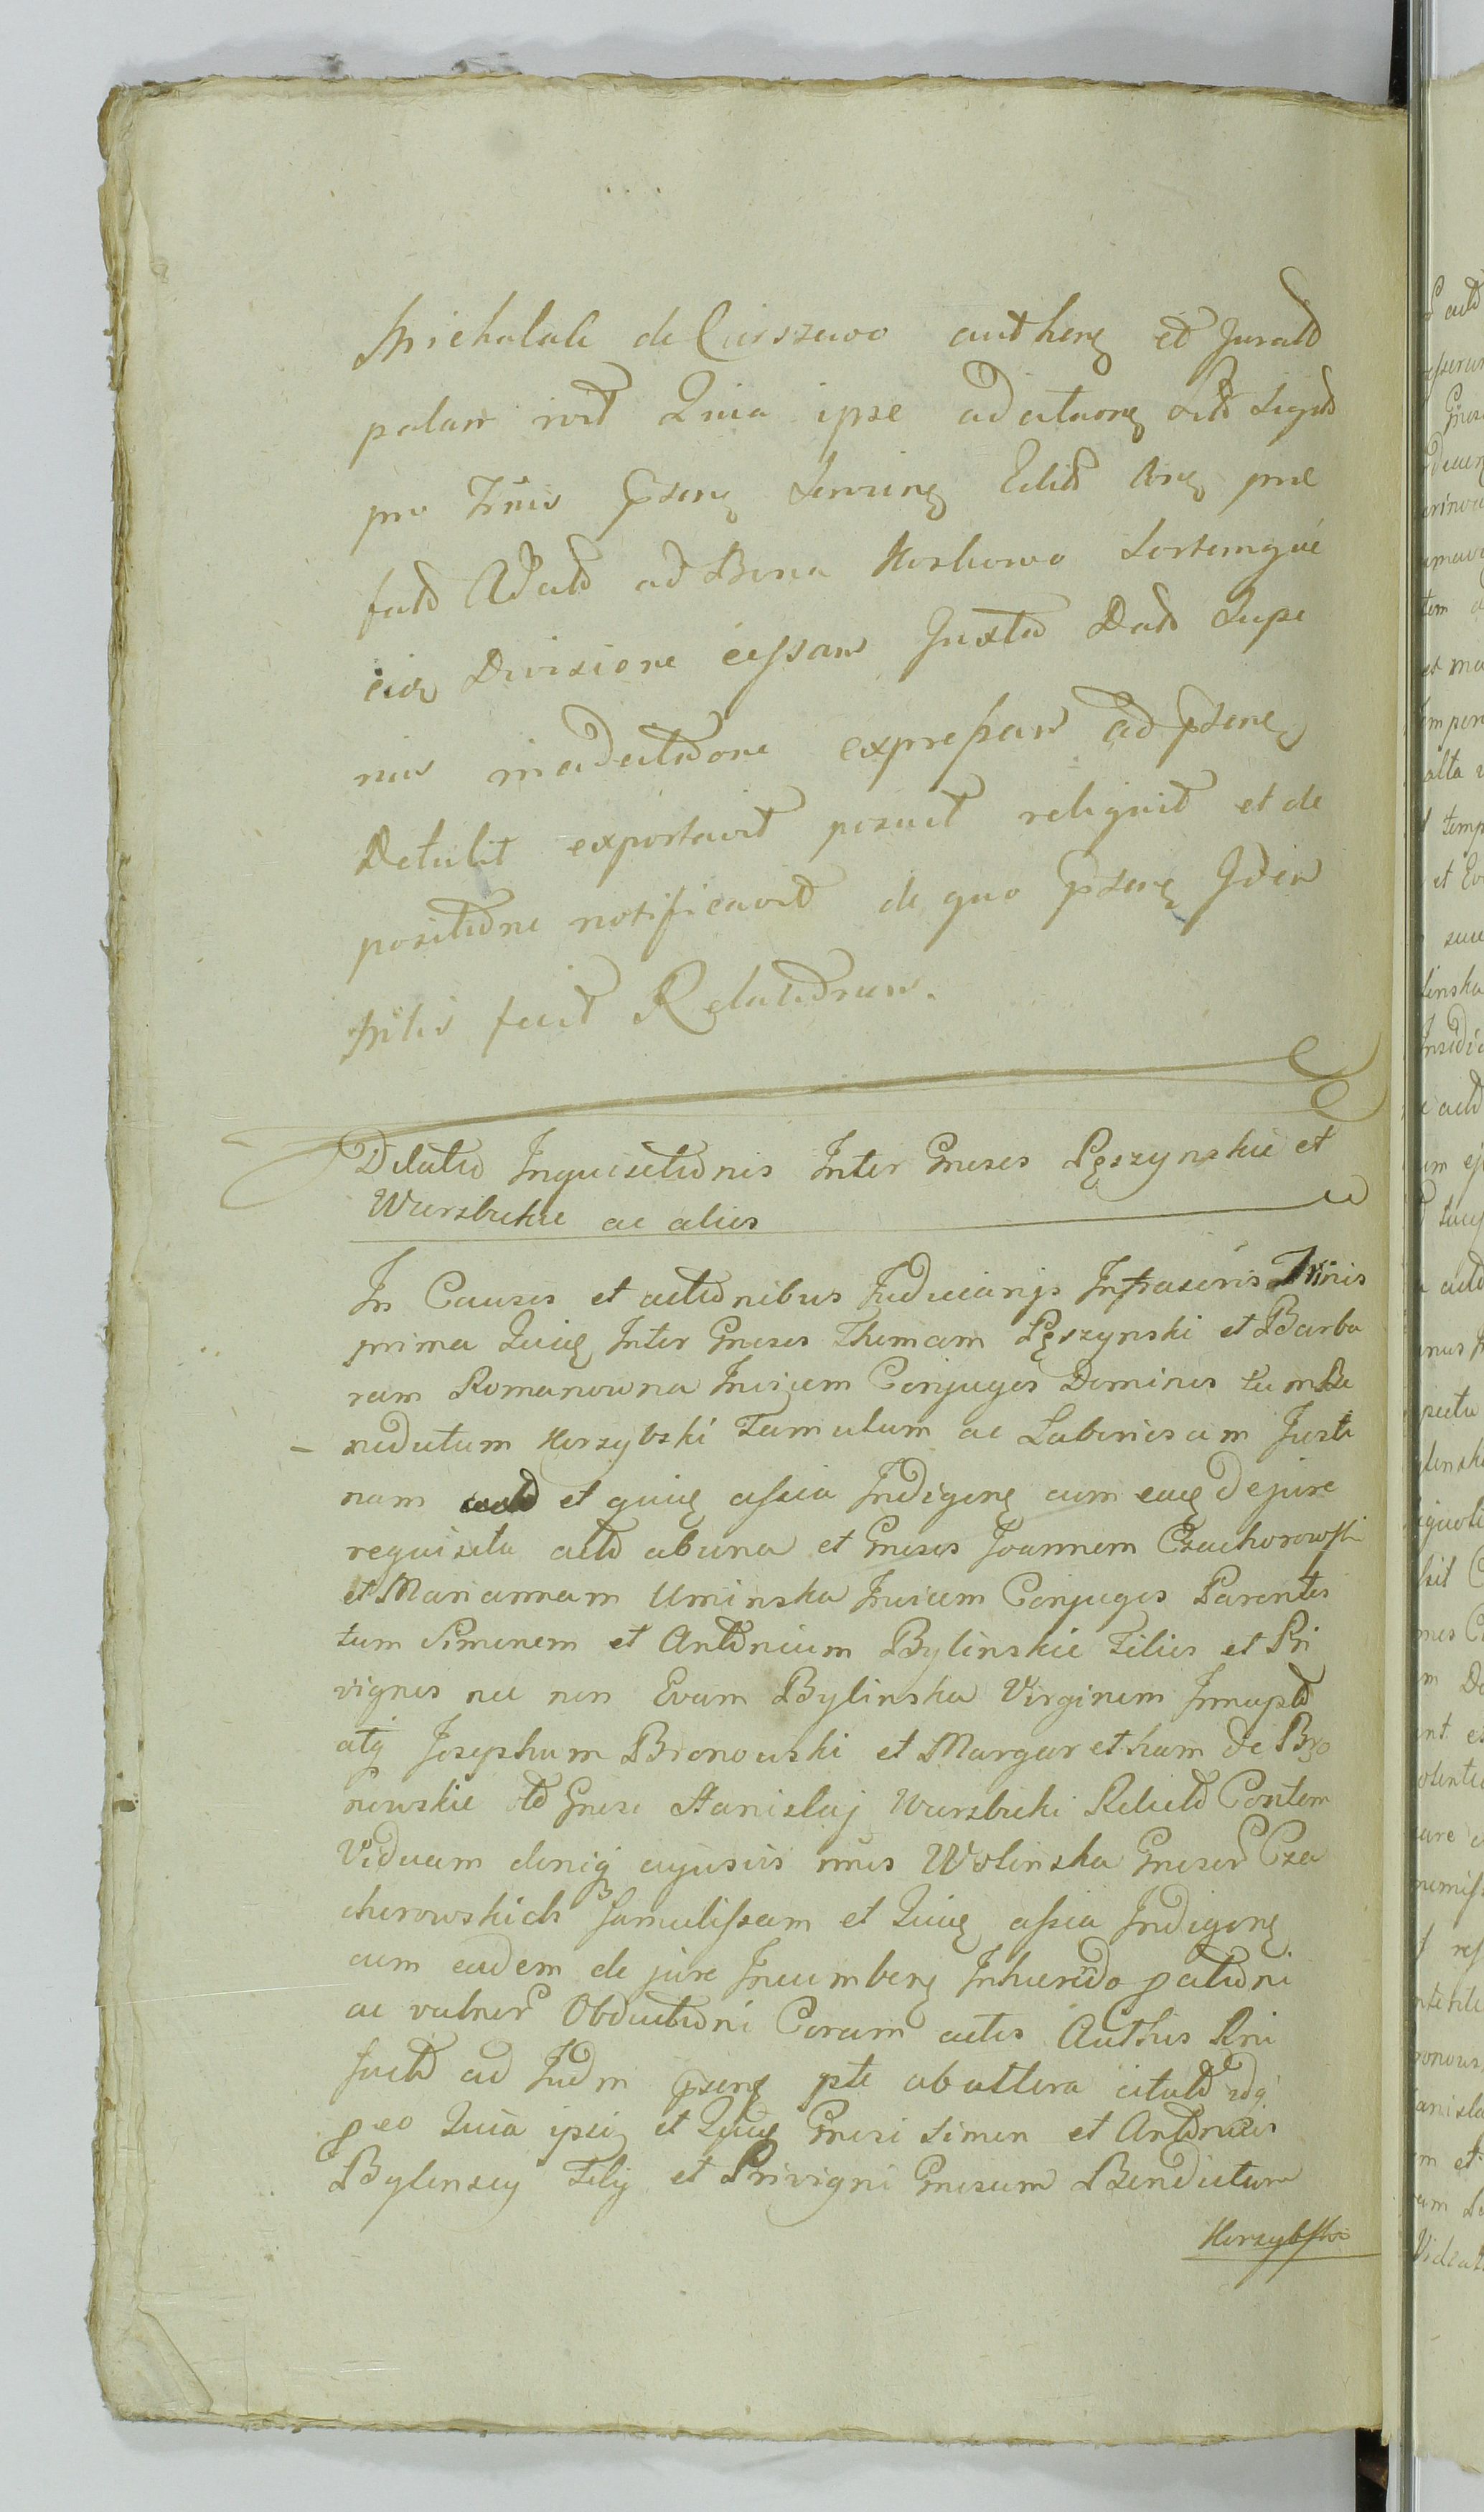 Michalak de Cieszewo authen et Jurat
palam rvit Quia ipse ad citaone Litt Sigill
pro Trnis psen Servien Edit One prae
fat Adcit ad Bona Korkowo Sortemque
eius Divisione cessam Juxta Dat Supe
rius in adcitatione expressam ad psene
Detulit exportavit posuit reliquit et de
positione notificavit de quo psene Idem
Mlis fecit Relationem.
Dilatio Inquisitionis Inter Gnosos Pęszynskie et
Wierzbickie ac alios
In Causis et actionibus Judiciarijs Infrascris Trinis
prima Quice Inter Gnosos Thomam Pęszynski et Barba
ram Romanowna Invicem Conjuges Dominos tum Be
nedictum Korzybski Famulum ac Laboriosam Justi
nam et quice assia Indigen cum eace de jure
requisita act ab una et Gnosos Joannem Czachorowski
et Mariannam Uminska Invicem Conjuges Parentes
tum Simonem et Antonium Bylinskie Filios et Pri
vignos nec non Evam Bylinska Virginem Innupt
atq Josephum Bronowski et Margaretham de Bro
nowskie olt Gnosi Stanislaj Wierzbicki Relict Contem
Viduam deniq cujusvis nmis Wolinska Gnosor Cza
chorowskich famulissam et Quice assia Indigen
cum eadem de jure Incumben Inhaerendo ptationi
ac vulner Obductioni Coram actis Authis Rni
fact ad Judm psens pte ab altera citat idq
p eo Quia ipsi et Quice Gnosi Simon et Antonius
Bylinscy Filij et Privigni Gnosum Benedictum
Korzybski